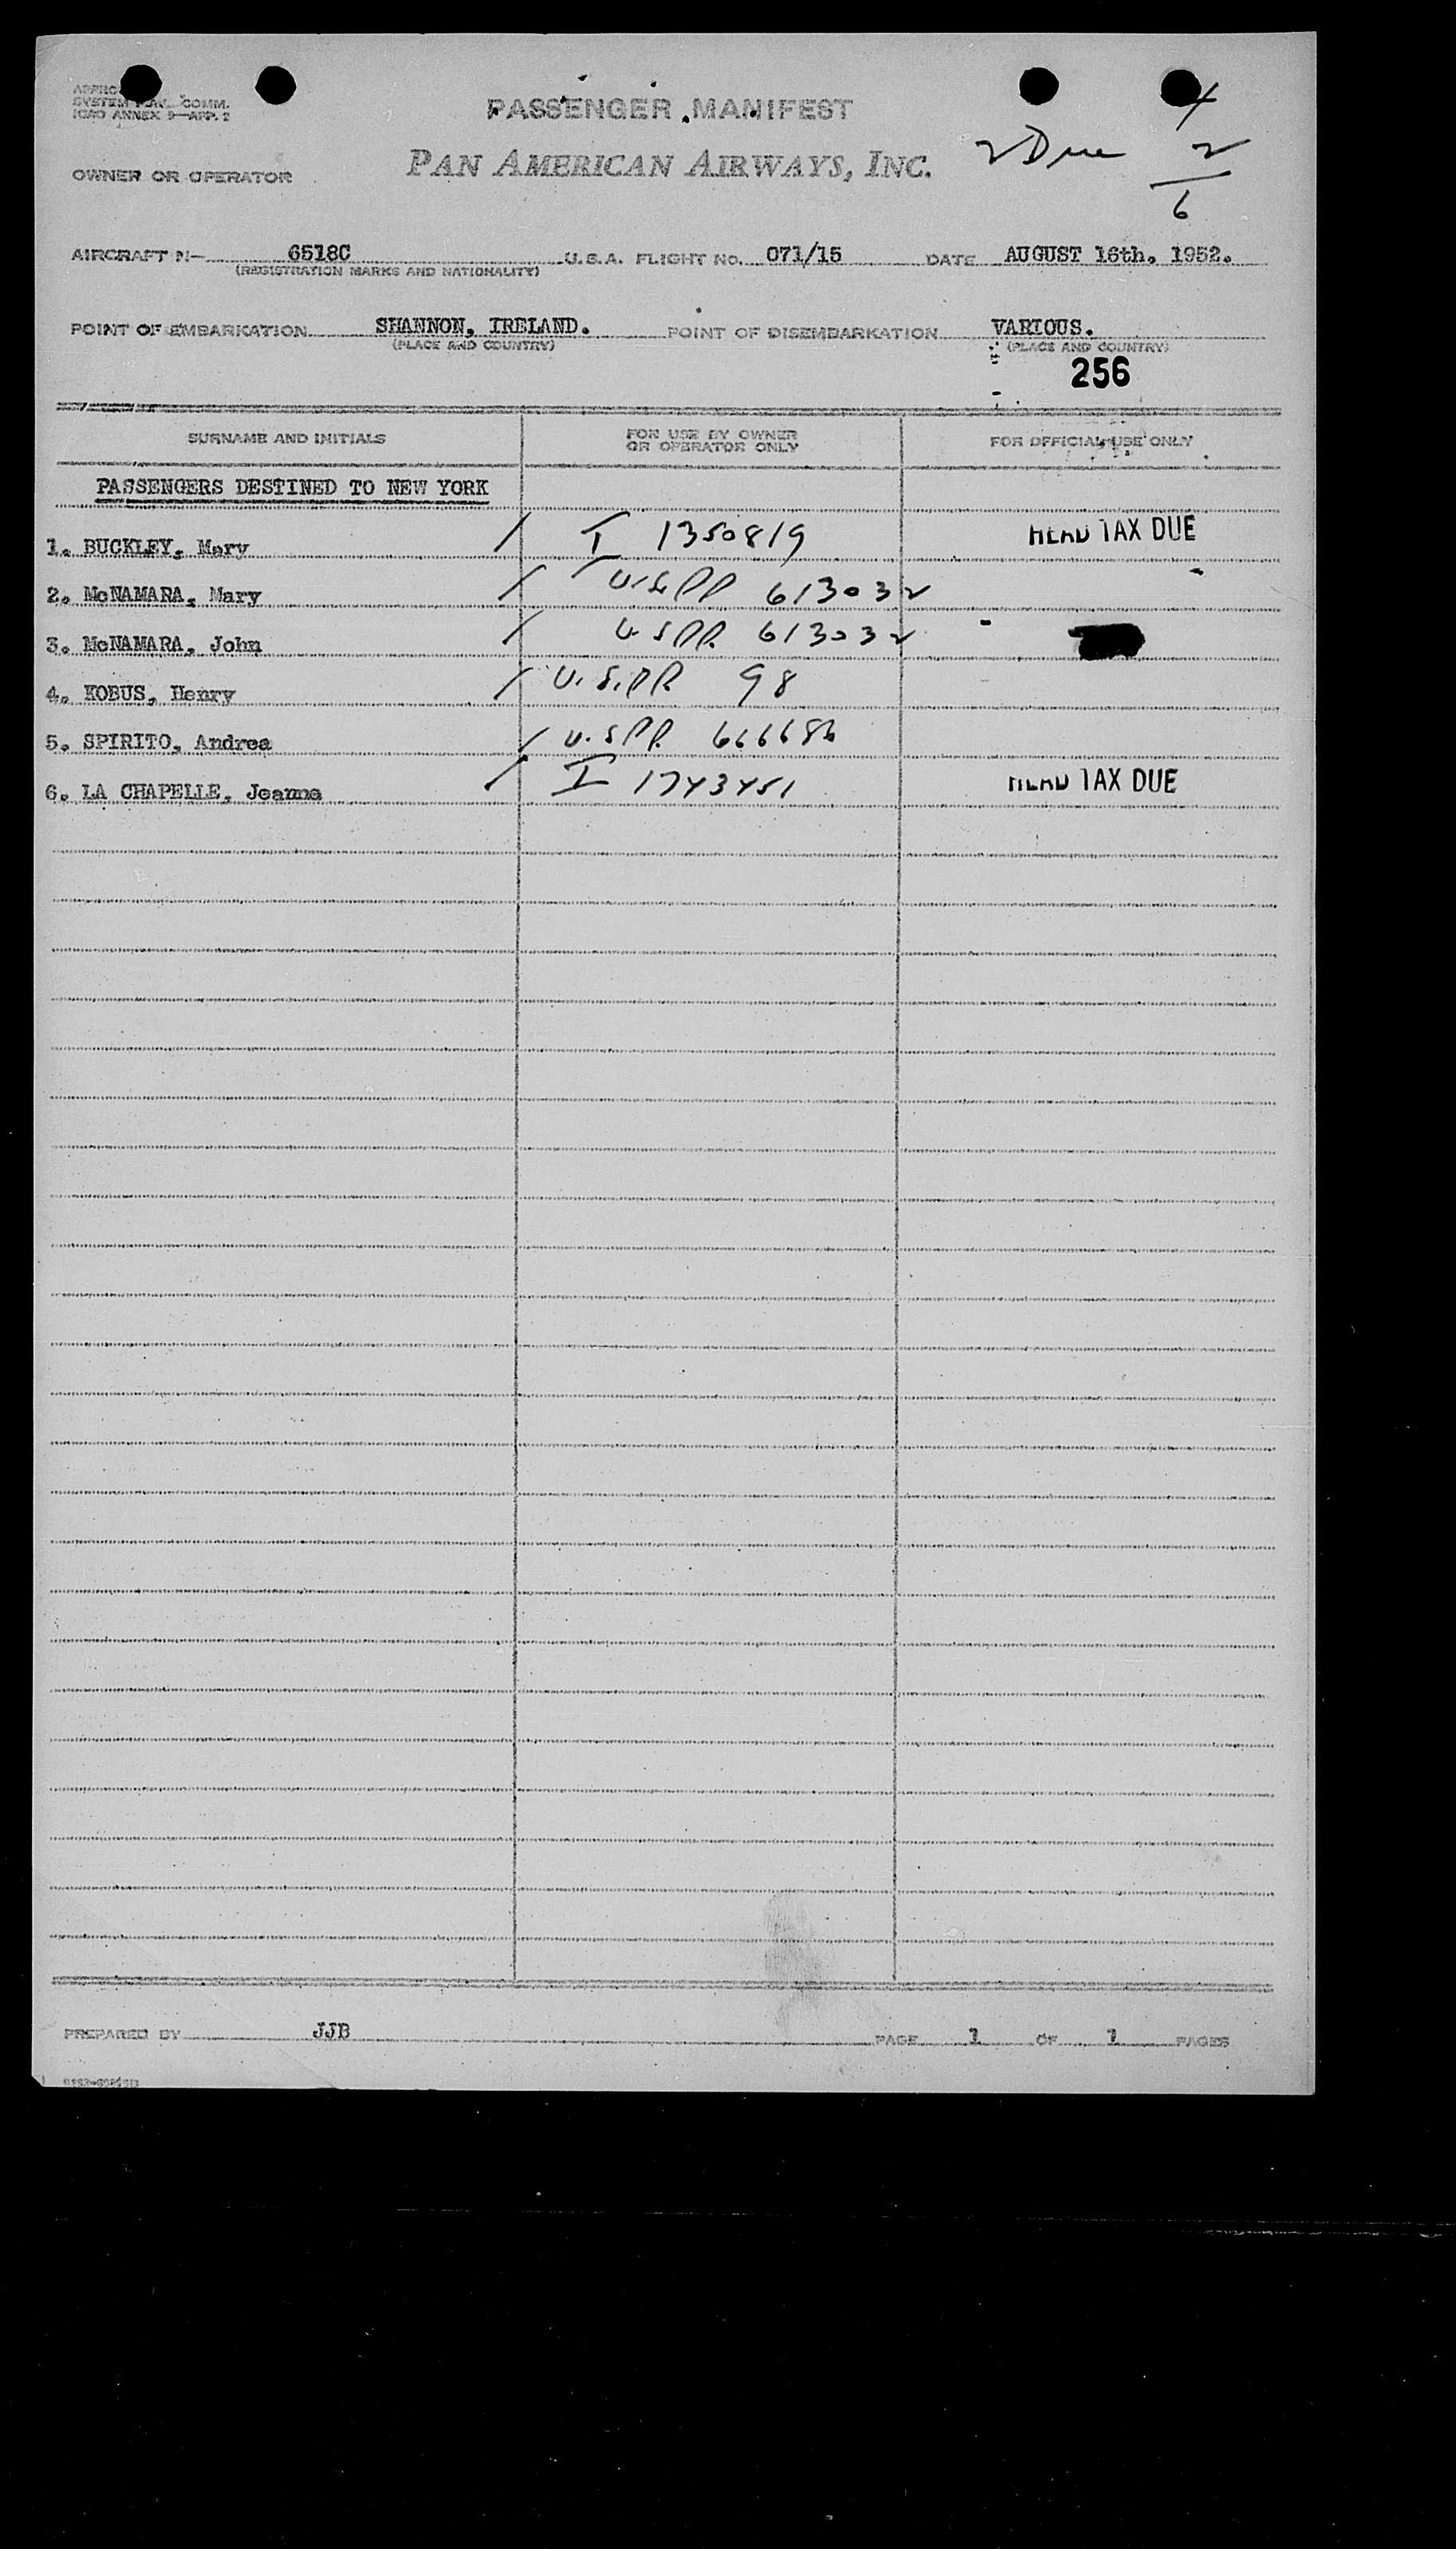 SYSTEM NAV. COMM.
ICAO ANNEX 9—APP. 2
PASSENGER MANIFEST
4
2 Due 2
6
OWNER OR OPERATOR PAN AMERICAN AIRWAYS, INC.
AIRCRAFT N— 6518C U.S.A. FLIGHT NO. 071/15 DATE AUGUST 16th. 1952.
(REGISTRATION MARKS AND NATIONALITY)
POINT OF EMBARKATION SHANNON, IRELAND. POINT OF DISEMBARKATION VARIOUS.
(PLACE AND COUNTRY) (PLACE AND COUNTRY)
256
SURNAME AND INITIALS FOR USE BY OWNER OR OPERATOR ONLY FOR OFFICIAL USE ONLY
PASSENGERS DESTINED TO NEW YORK
1. BUCKLEY, Mary / I 1350819 HEAD TAX DUE
2. McNAMARA, Mary / U.S.PP 613032
3. McNAMARA, John / U.S PP. 613032
4. KOBUS, Henry / U.S.PP. 98
5. SPIRITO, Andrea / U.S PP. 666686
6. LA CHAPELLE, Jeanne / I 1743451 HEAD TAX DUE
PREPARED BY JJB PAGE 1 OF 1 PAGES